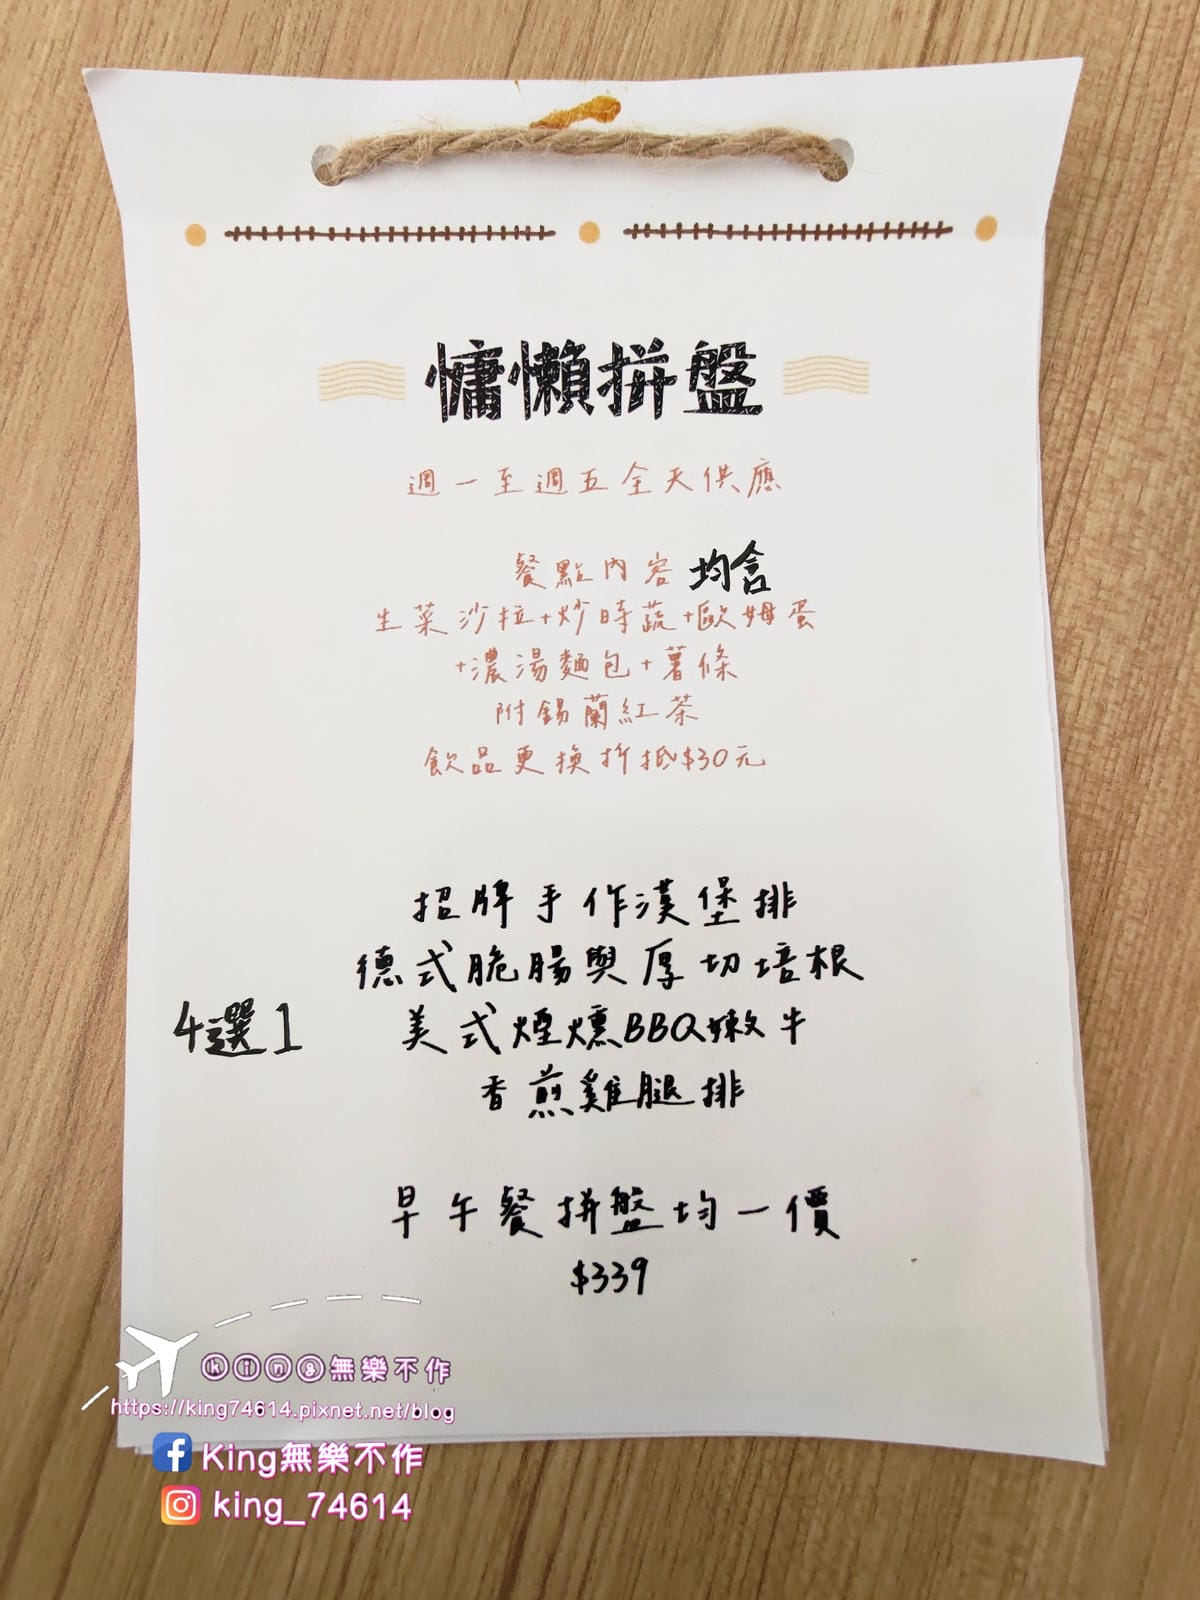 慵懶拼盤
週一至週五全天供應
餐點內容 均含
生菜沙拉+炒時蔬+歐姆蛋
+濃湯麵包+薯條
附錫蘭紅茶
飲品更換折抵$30元
招牌手作漢堡排
德式脆腸與厚切培根
4選1
美式煙燻BBQ嫩牛
香煎雞腿排
早午餐拼盤均一價
$339
king無樂不作
https://king74614.pixnet.net/blog
King無樂不作
king_74614